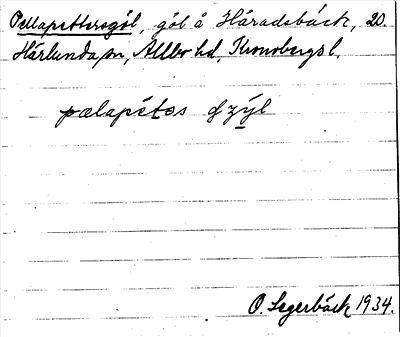 Pellapettersgöl, göl å Häradsbäck, 20.
Härlunda sn, Allbo hd, Kronobergs l.
pælapétəs
O. Segerbäck 1934.